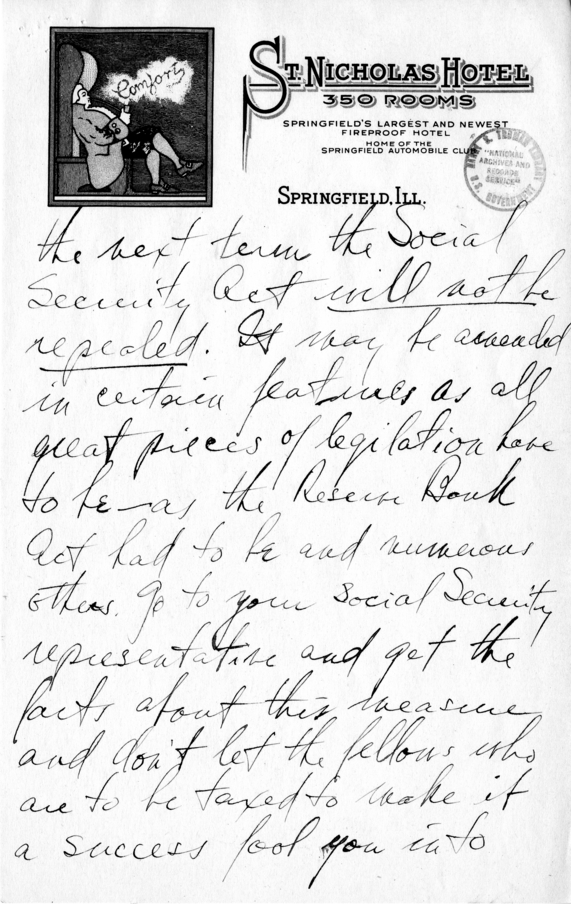 Comfort
ST. NICHOLAS HOTEL
350 ROOMS
SPRINGFIELD'S LARGEST AND NEWEST
FIREPROOF HOTEL
HOME OF THE
SPRINGFIELD AUTOMOBILE CLUB
HARRY S. TRUMAN LIBRARY
"NATIONAL
ARCHIVES AND
RECORDS
SERVICE"
U.S. GOVERNMENT
SPRINGFIELD, ILL.
the next term the Social
Security Act will not be
repealed. It may be amended
in certain features as all
great pieces of legilation have
to be—as the Reserve Bank
Act had to be and numerous
others. Go to your Social Security
representative and get the
facts about this measure
and don't let the fellows who
are to be taxed to make it
a success fool you into